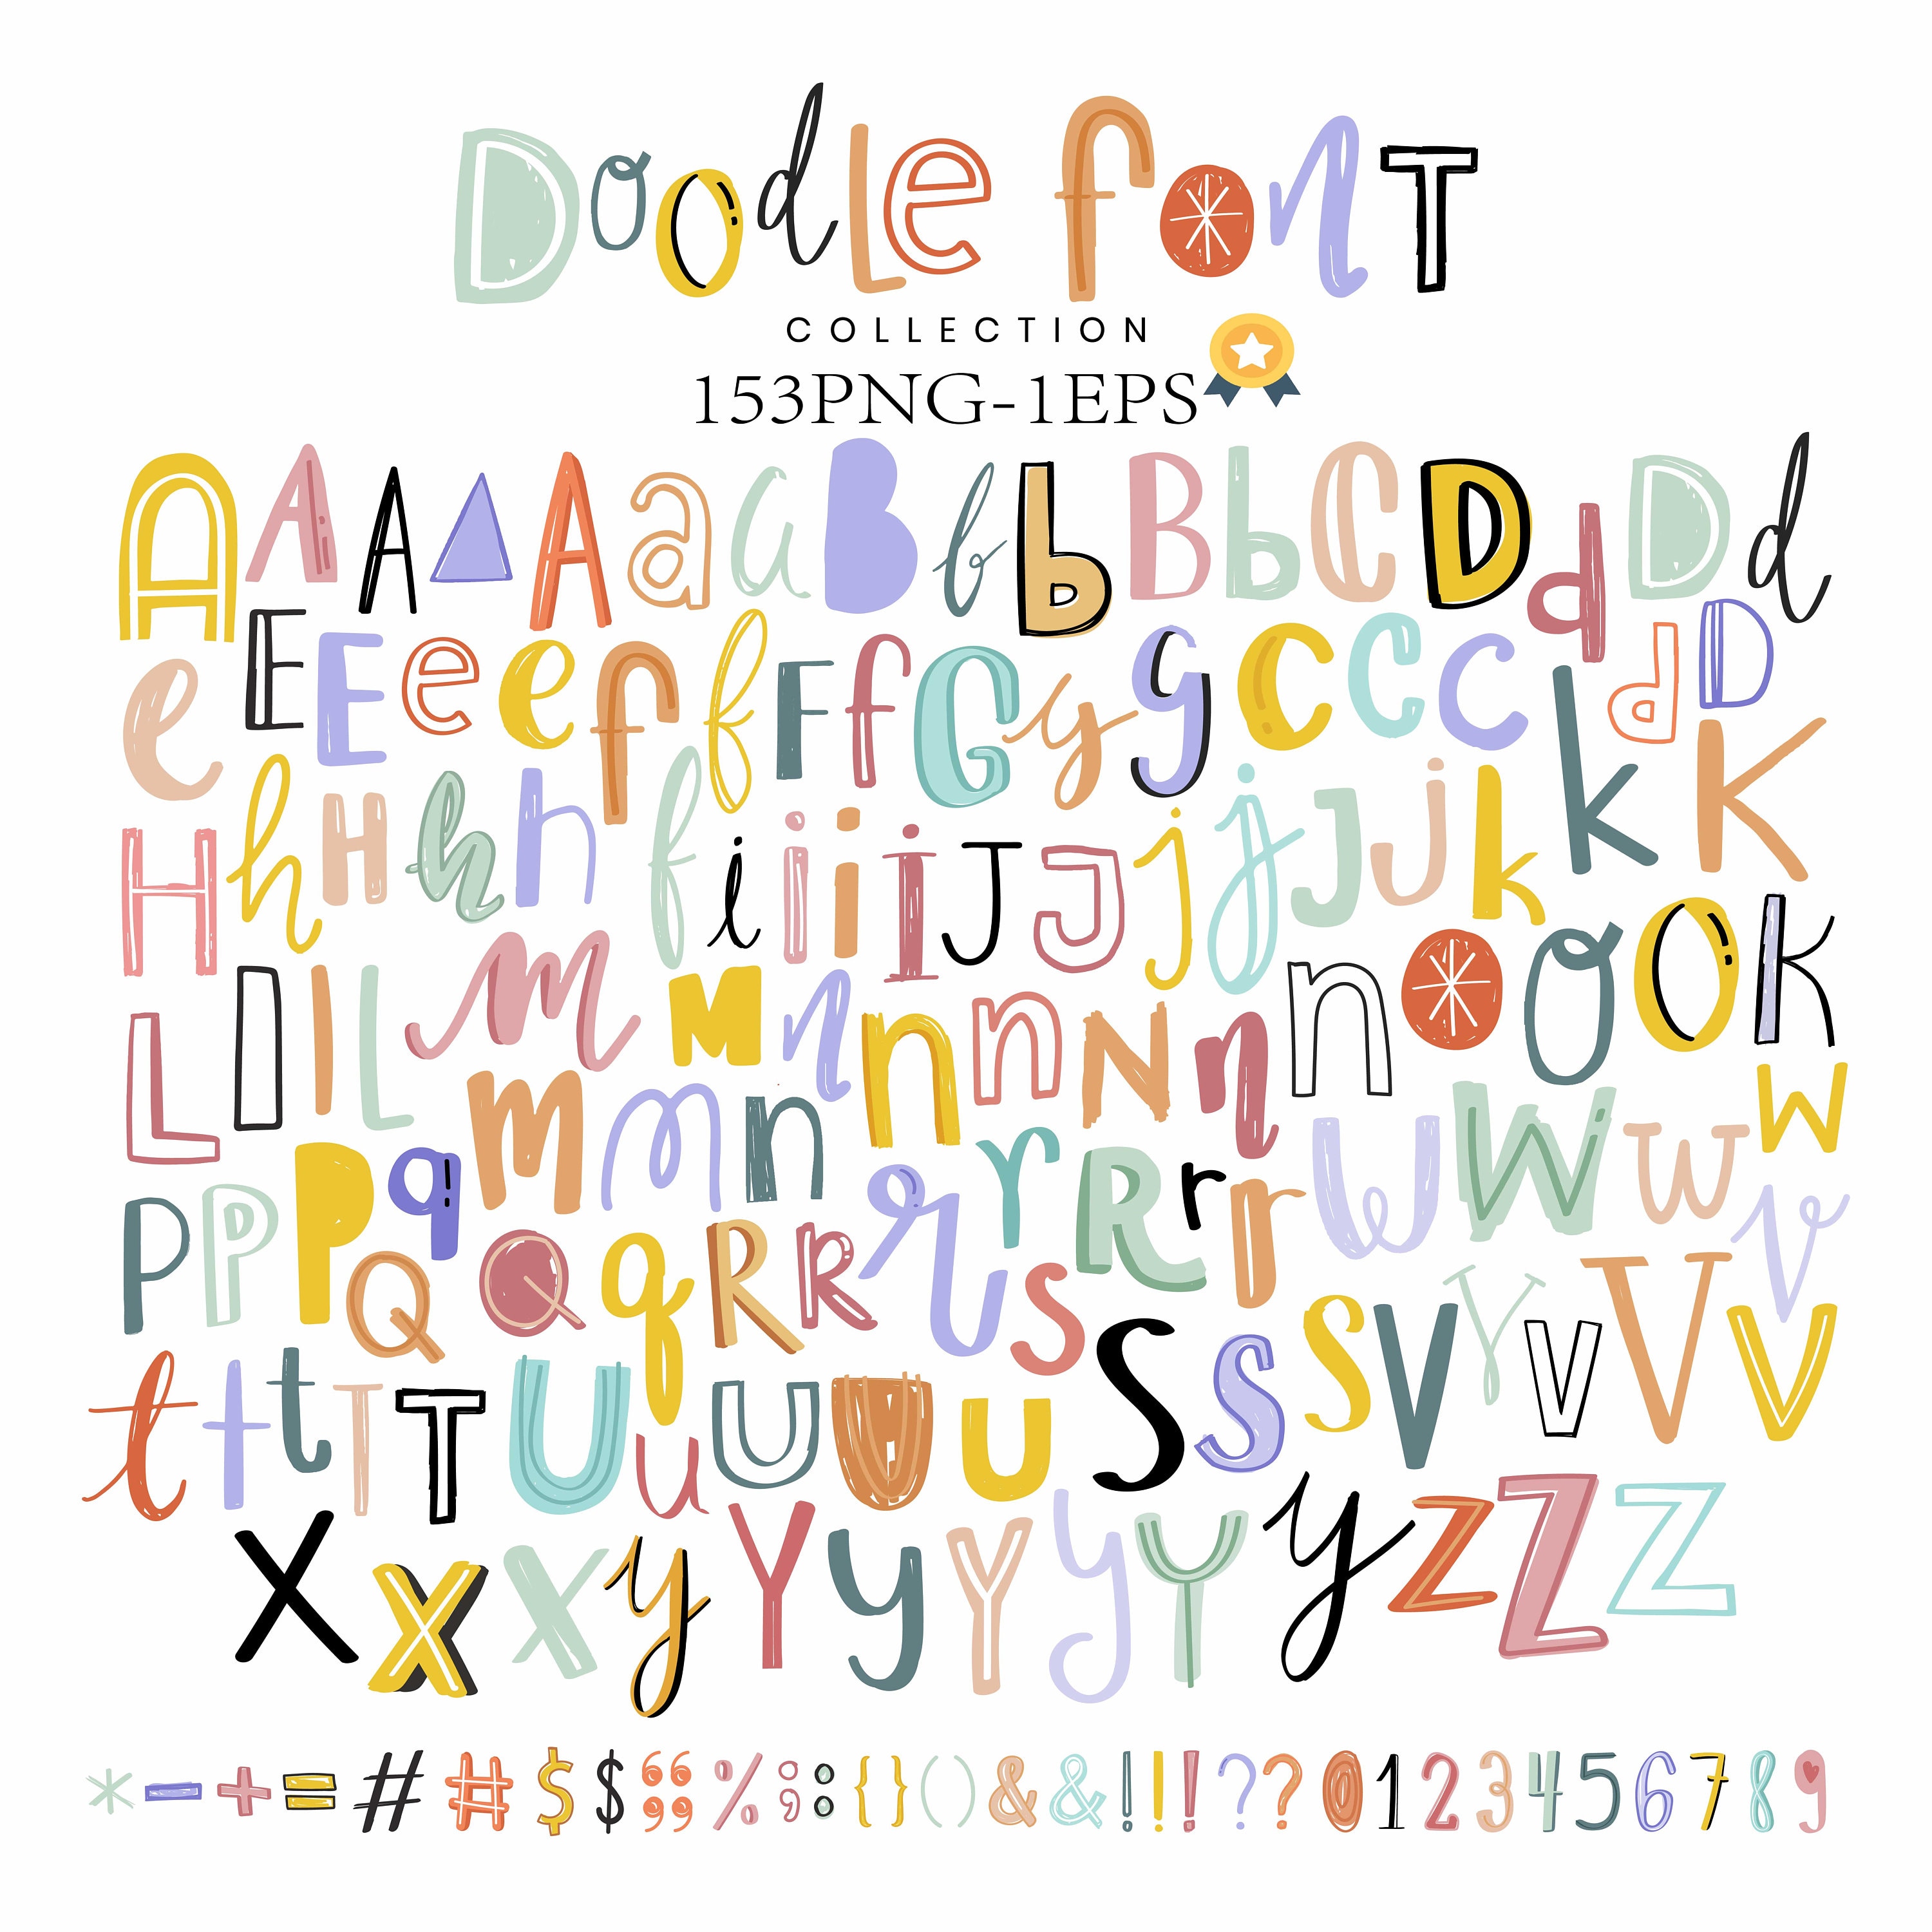 Doodle fonT
COLLECTION
153PNG-1EPS
A A A A A a a B b b B b C D d D d
e E E e e f f F f G y g C C C d D
H h H h h f i i i I J J j j J j k K K
L I l L m M n n n N n n o O O K
P P P q m m n r R r r W W w v w
Q Q q R R r s S S S V Y V V V
t t t T T U u U U U
X X X y Y y Y y Y y Z Z Z
* - + = # # $ $ “ ” % ; : { } ( ) & & ! ! ! ? ? 0 1 2 3 4 5 6 7 8 9